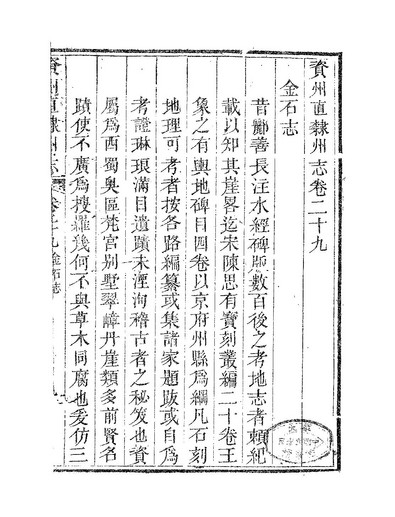 資州直隸州志卷二十九
金石志
昔酈善長注水經碑版數百後之考地志者賴紀
載以知其崖畧迄宋陳思有寶刻叢編二十卷王
象之有輿地碑目四卷以京府州縣爲綱凡石刻
地理可考者按各路編纂或集諸家題跋或自爲
考證琳琅滿目遺蹟未湮洵稽古者之秘笈也資
屬爲西蜀奧區梵宮别墅翠嶂丹崖類多前賢名
蹟使不廣爲搜羅幾何不與草木同腐也爰仿三
資州直隸州志 卷之二九 金石志